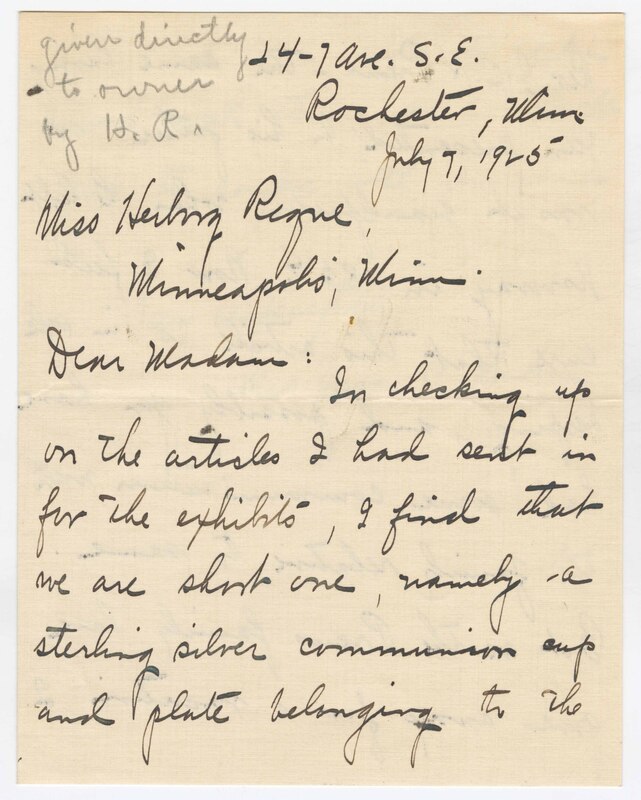 given directly
to owner
by H. R.
24-7 Ave. S.E.
Rochester, Minn.
July 7, 1925
Miss Herborg Reque,
Minneapolis, Minn.
Dear Madam:
In checking up
on the articles I had sent in
for the exhibits, I find that
we are short one, namely - a
sterling silver communion cup
and plate belonging to the